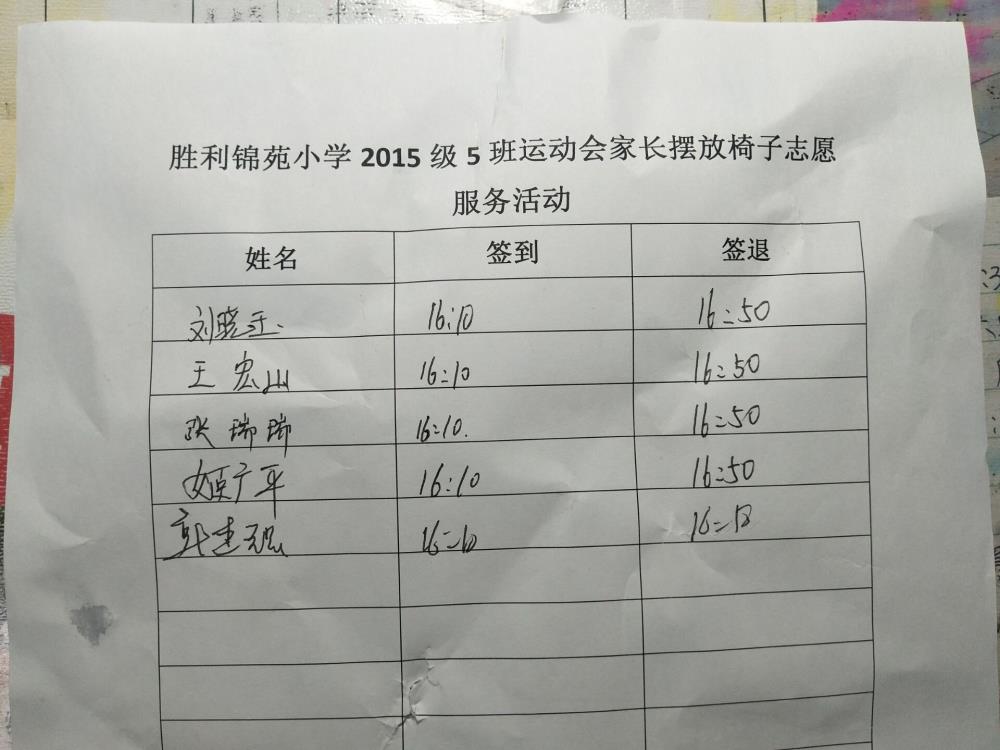 胜利锦苑小学 2015 级 5 班运动会家长摆放椅子志愿
服务活动
姓名 签到 签退
刘晓玉 16:10 16:50
王宏山 16:10 16:50
张瑞瑞 16:10. 16:50
姬广平 16:10 16:50
郭建强 16:10